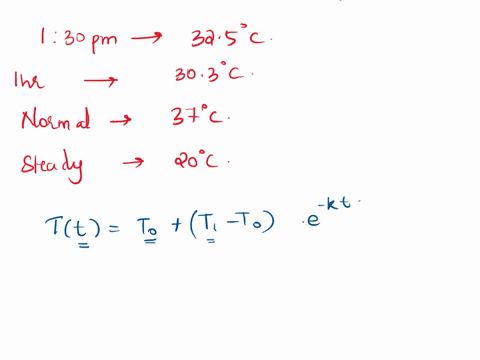 1:30 pm → 32.5°C.
1hr → 30.3°C.
Normal → 37°C.
Steady → 20°C.
T(t) = T₀ + (T₁ - T₀) .e^{-kt}.